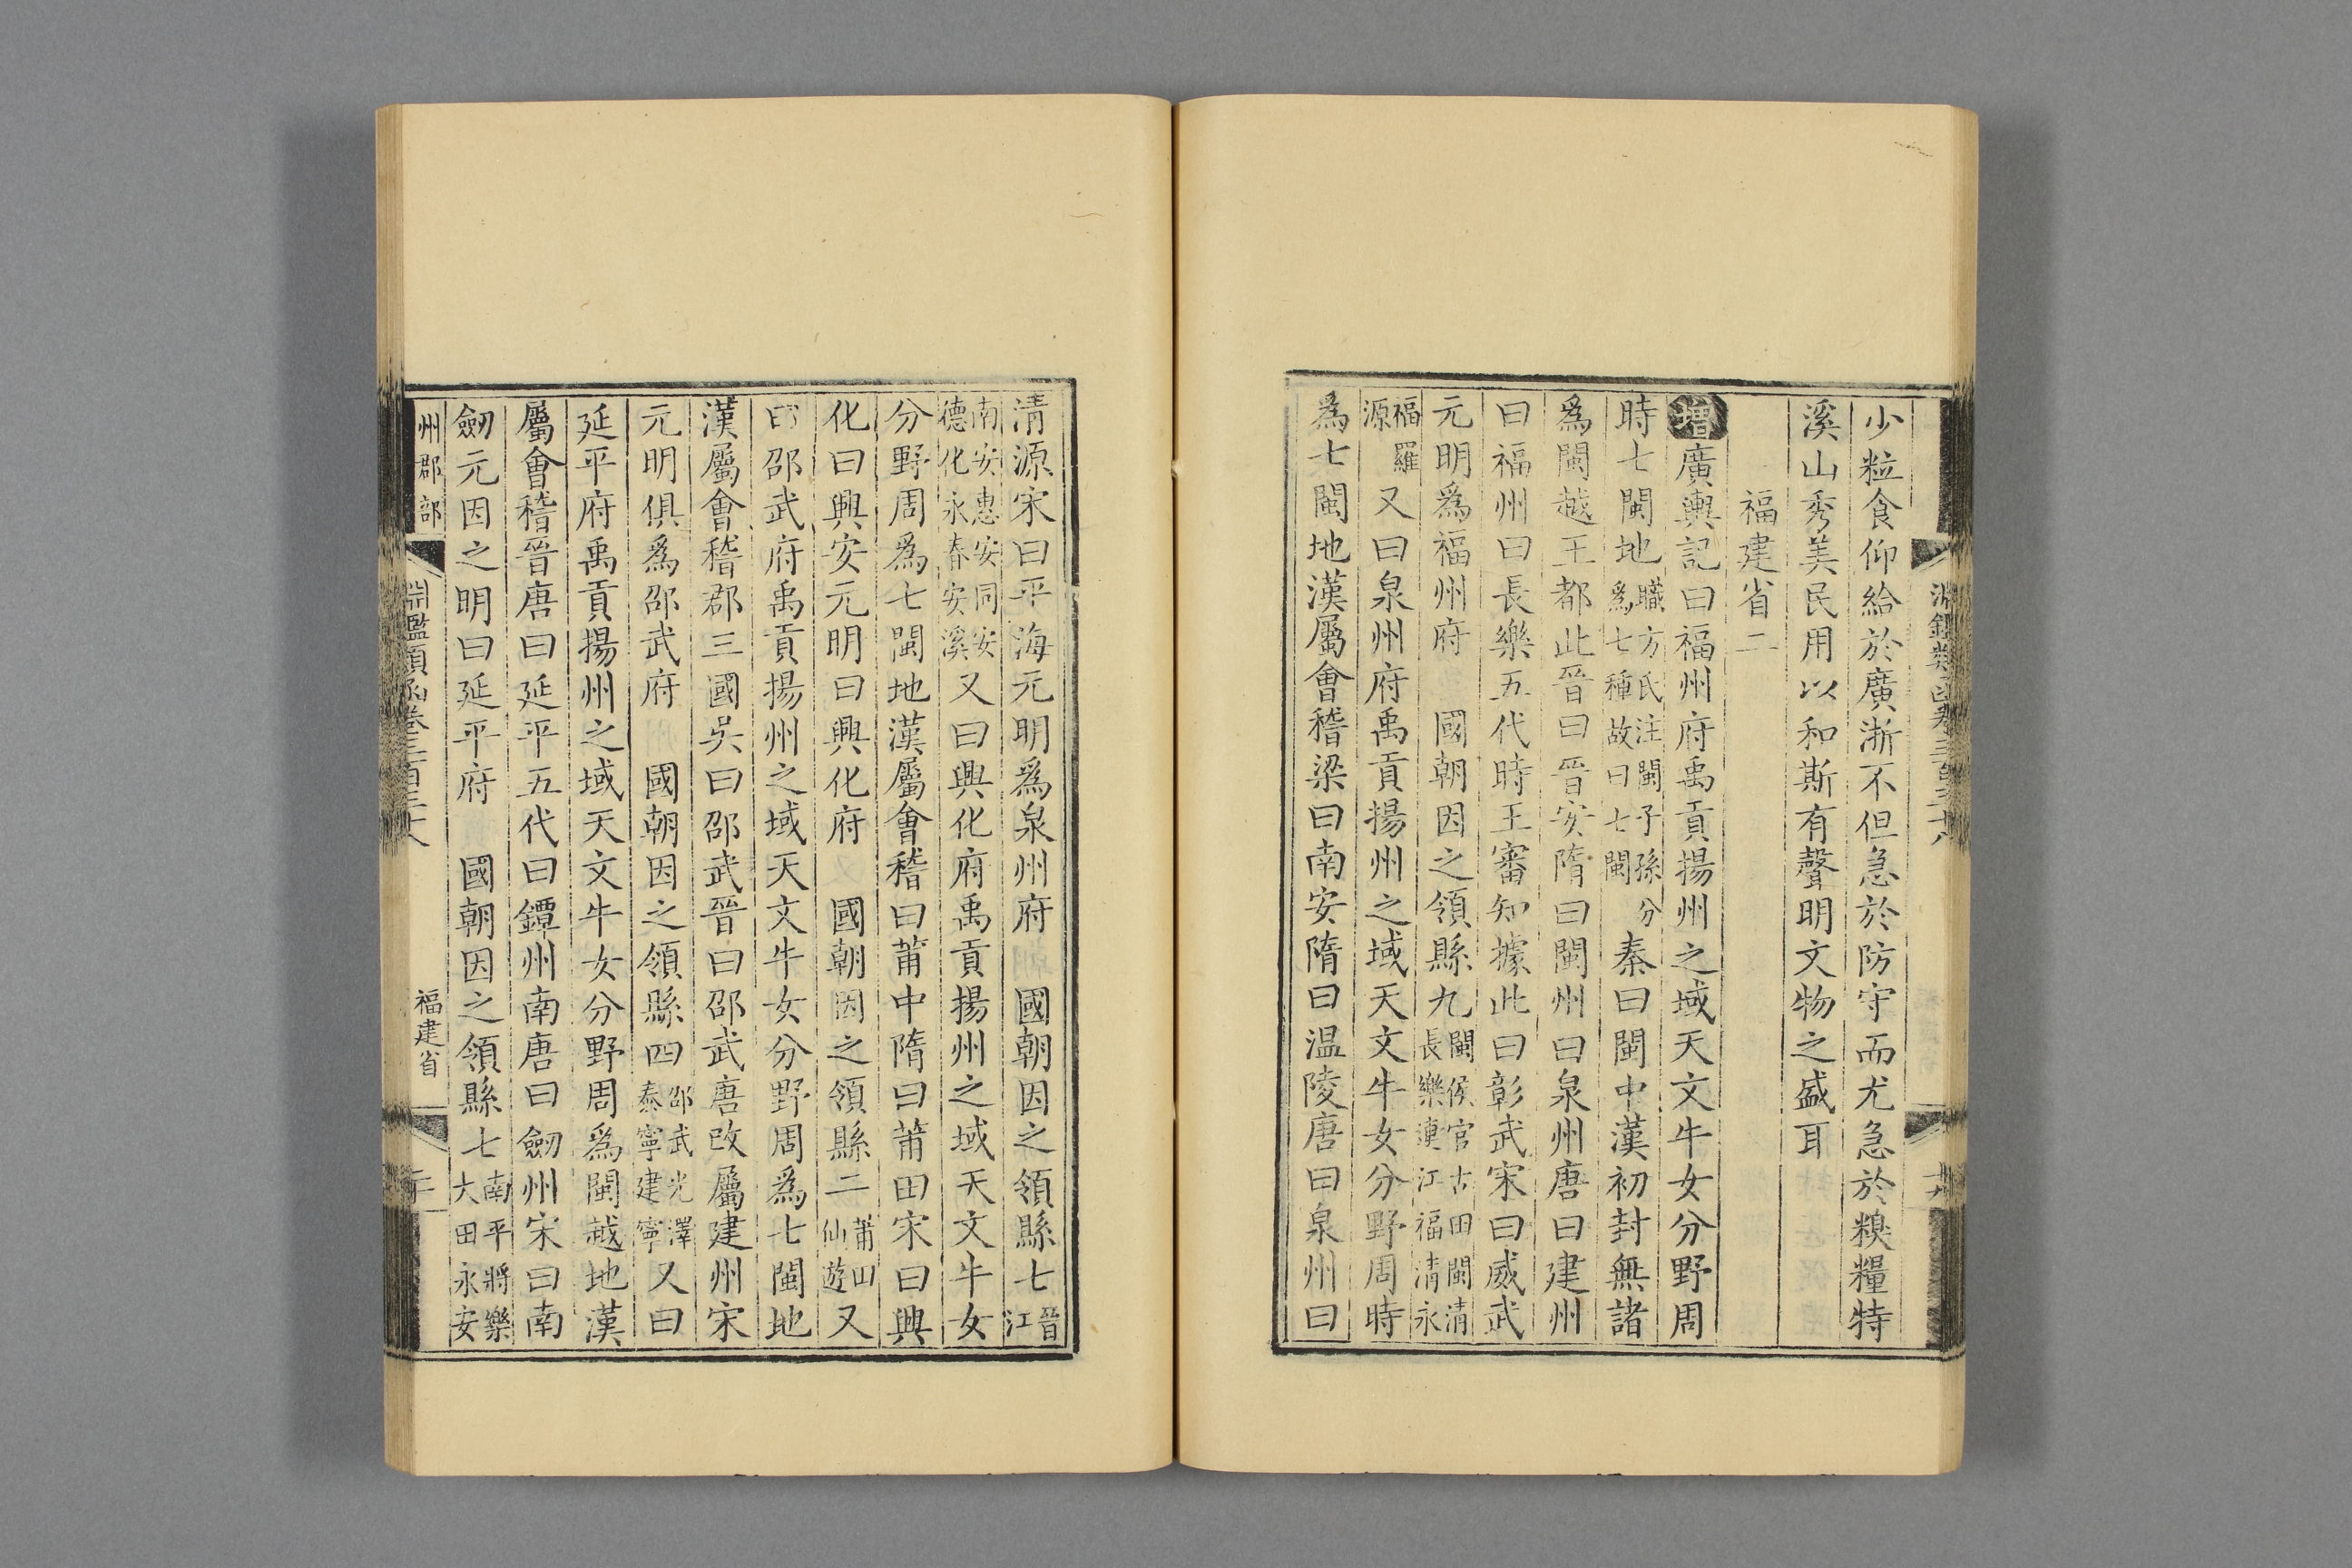 少粒食仰給於廣浙不但急於防守而尤急於糗糧特
溪山秀美民用以和斯有聲明文物之盛耳
福建省二
增廣輿記曰福州府禹貢揚州之域天文牛女分野周
時七閩地職方氏注閩子孫分爲七種故曰七閩秦曰閩中漢初封無諸
爲閩越王都此晉曰晉安隋曰閩州曰泉州唐曰建州
曰福州曰長樂五代時王審知據此曰彰武宋曰威武
元明爲福州府 國朝因之領縣九閩侯官古田閩清長樂連江福清永
福羅源又曰泉州府禹貢揚州之域天文牛女分野周時
爲七閩地漢屬會稽梁曰南安隋曰温陵唐曰泉州曰
清源宋曰平海元明爲泉州府 國朝因之領縣七晉江
南安惠安同安德化永春安溪又曰興化府禹貢揚州之域天文牛女
分野周爲七閩地漢屬會稽曰莆中隋曰莆田宋曰興
化曰興安元明曰興化府 國朝因之領縣二莆田仙遊又
曰邵武府禹貢揚州之域天文牛女分野周爲七閩地
漢屬會稽郡三國吳曰邵武晉曰邵武唐改屬建州宋
元明俱爲邵武府 國朝因之領縣四邵武光澤泰寧建寧又曰
延平府禹貢揚州之域天文牛女分野周爲閩越地漢
屬會稽晉唐曰延平五代曰鐔州南唐曰劒州宋曰南
劒元因之明曰延平府 國朝因之領縣七南平將樂大田永安
州郡部 淵鑑類函卷三百三十八 福建省 二十